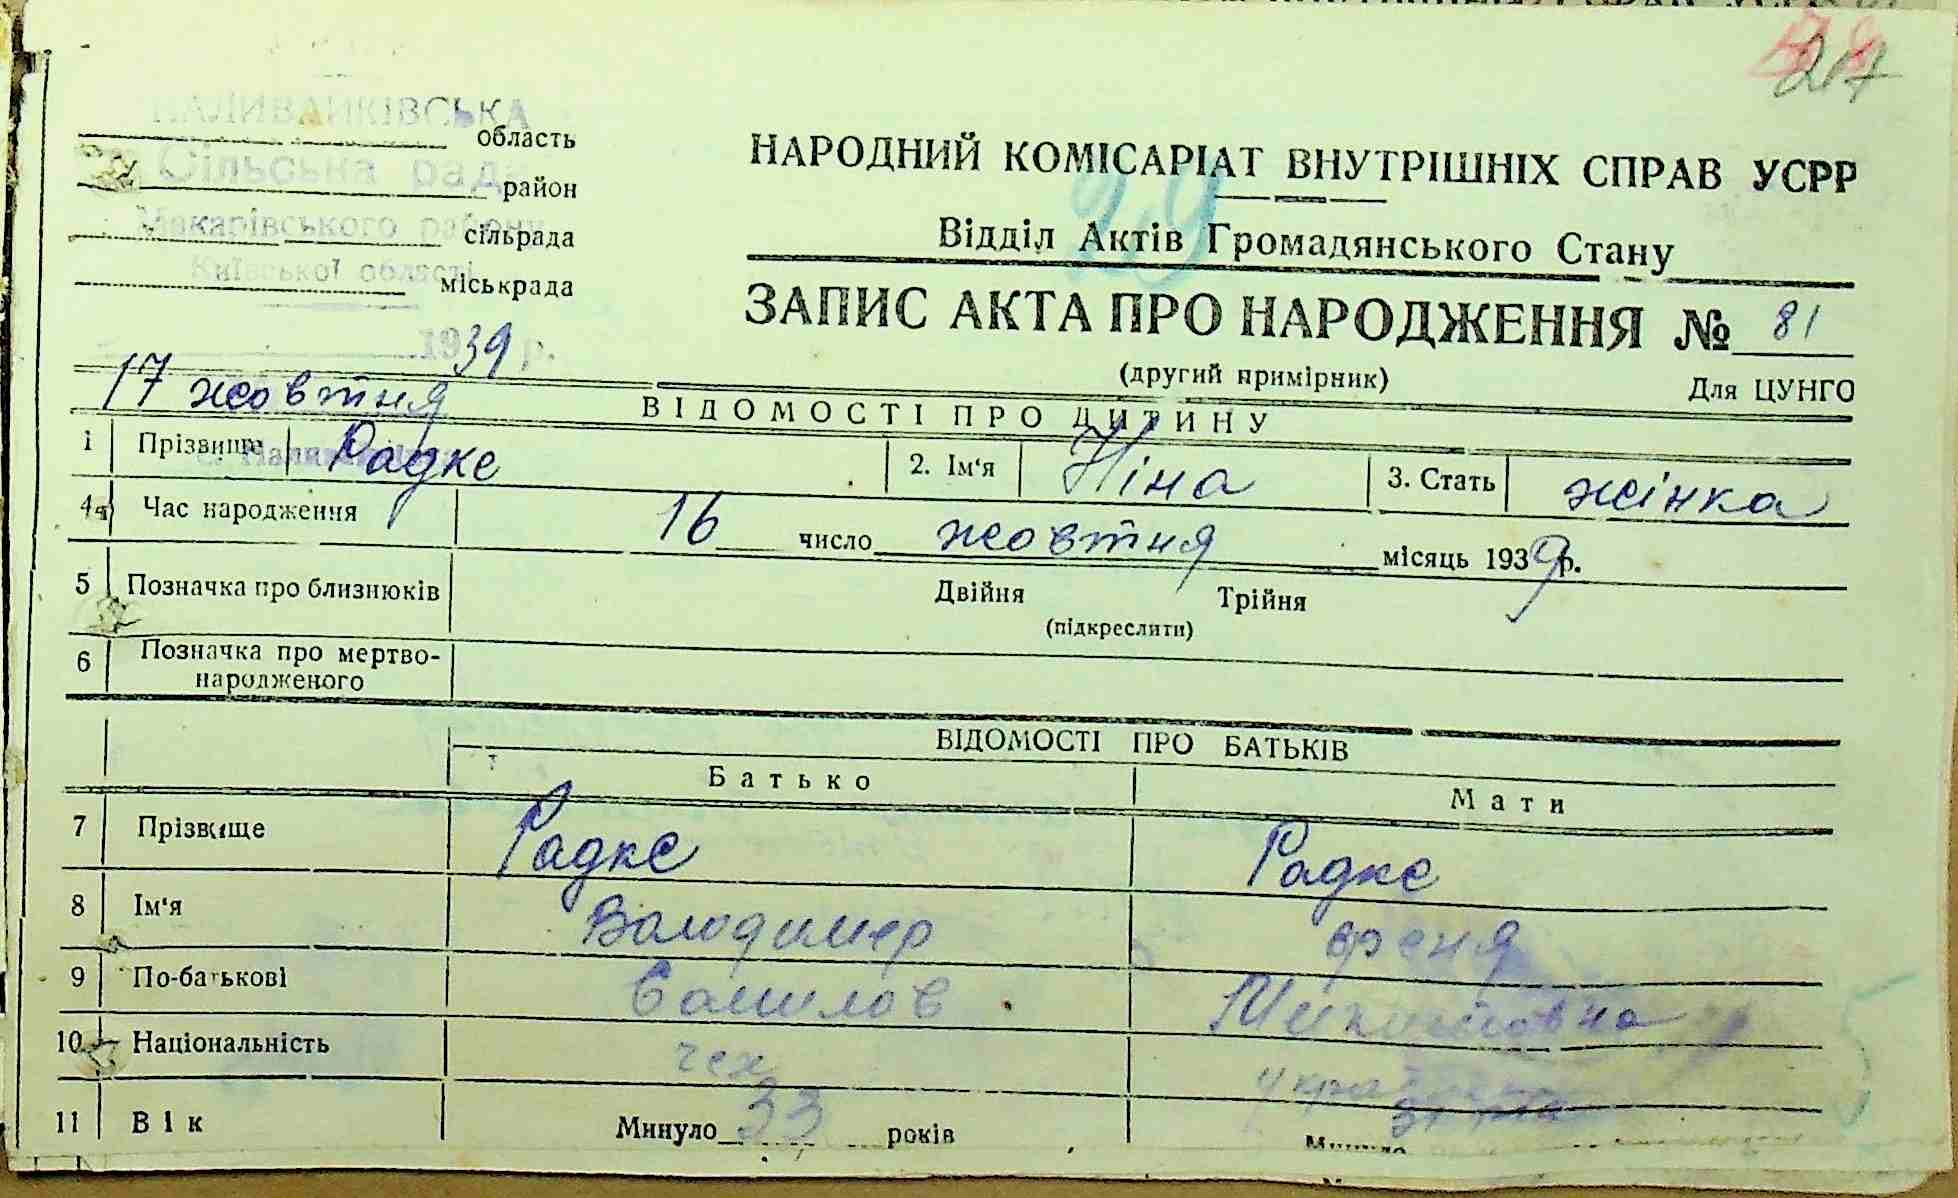 27
НАЛИВАЙКІВСЬКА
область
Сільська рада
район
Макарівського району
сільрада
Київської області
міськрада
НАРОДНИЙ КОМІСАРІАТ ВНУТРІШНІХ СПРАВ УСРР
29
Відділ Актів Громадянського Стану
ЗАПИС АКТА ПРО НАРОДЖЕННЯ № 81
1939 р.
(другий примірник) Для ЦУНГО
17 жовтня
ВІДОМОСТІ ПРО ДИТИНУ
1 Прізвище Радке 2. Ім'я Ніна 3. Стать жінка
4 Час народження 16 число жовтня місяць 1939 р.
5 Позначка про близнюків Двійня Трійня
(підкреслити)
6 Позначка про мертво-
народженого
ВІДОМОСТІ ПРО БАТЬКІВ
Батько Мати
7 Прізвище Радке Радке
8 Ім'я Володимер
9 По-батькові
10 Національність чех
11 Вік Минуло 33 років